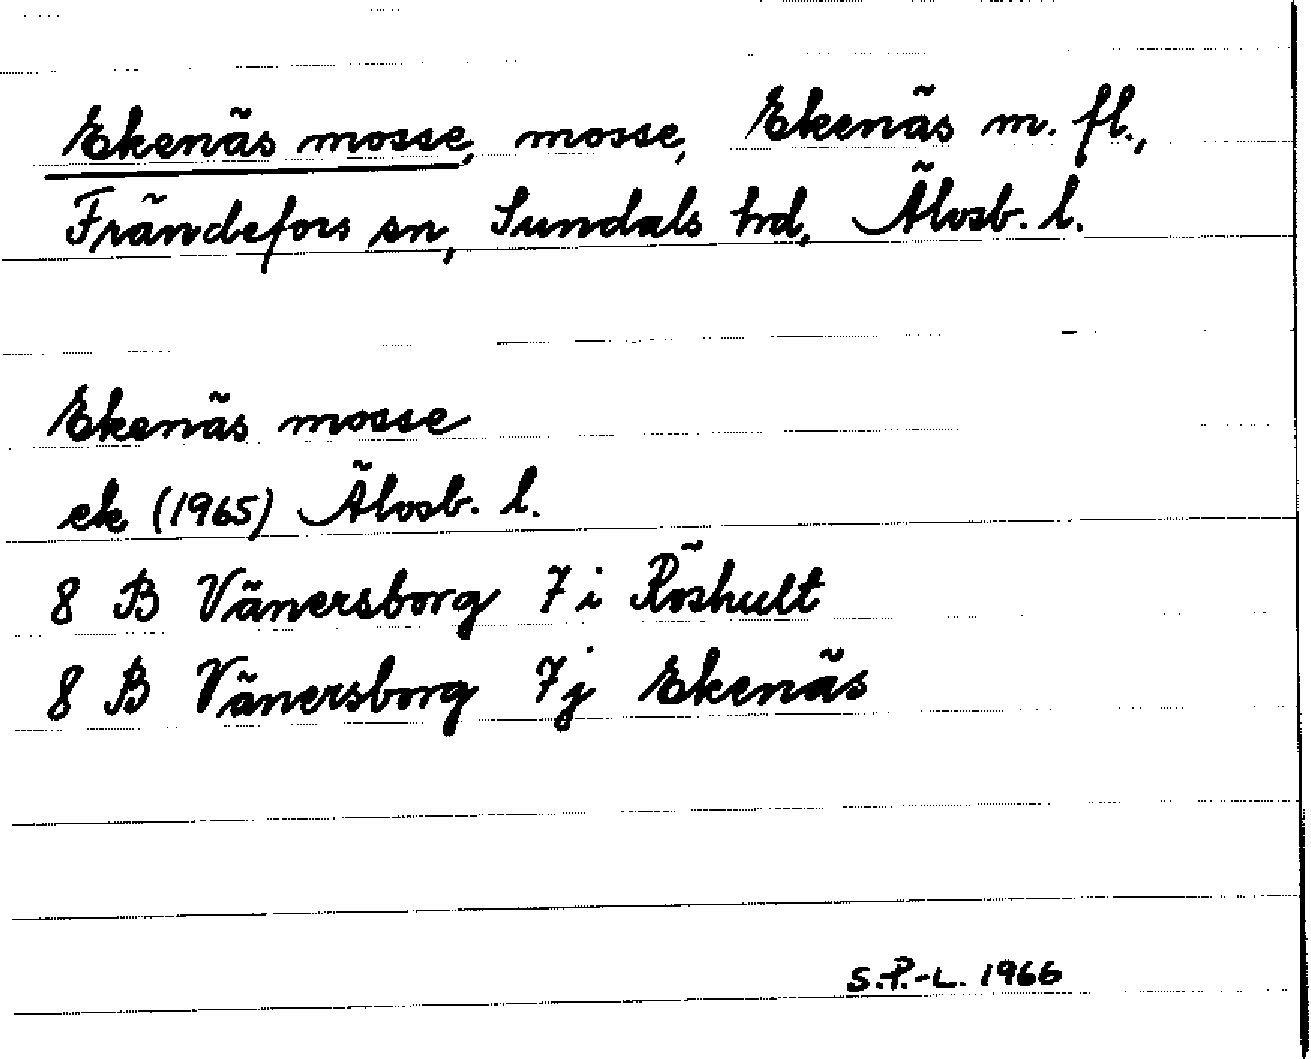 Ekenäs mosse, mosse, Ekenäs m. fl.,
Frändefors sn, Sundals hd, Älvsb. l.
Ekenäs mosse
ek (1965) Älvsb. l.
8 B Vänersborg 7 i Röshult
8 B Vänersborg 7 j Ekenäs
S.P.-L. 1966